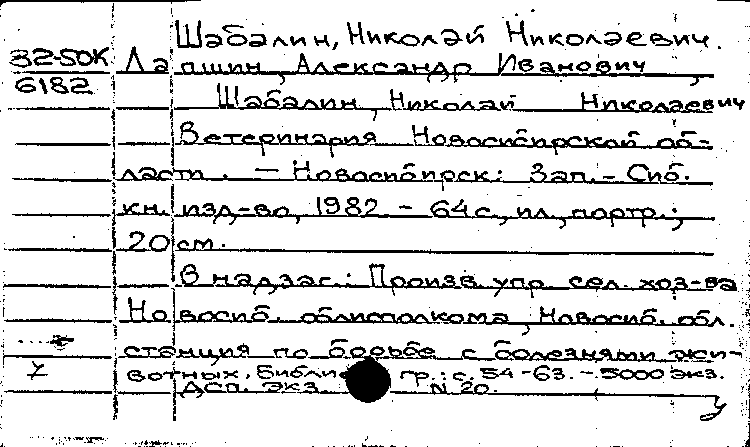 Шабалин, Николай Николаевич.
82-50К Лапшин, Александр Иванович,
6182 Шабалин, Николай Николаевич
Ветеринария Новосибирской об-
ласти. — Новосибирск: Зап.-Сиб.
кн. изд-во, 1982 - 64с., ил., портр.;
20 см.
В надзаг.: Произв. упр. сел. хоз-ва
Новосиб. облисполкома, Новосиб. обл.
станция по борьбе с болезнями жи-
вотных. Библи гр.: с. 54-63. - 5000 экз.
Дсп. экз. N 20.
У